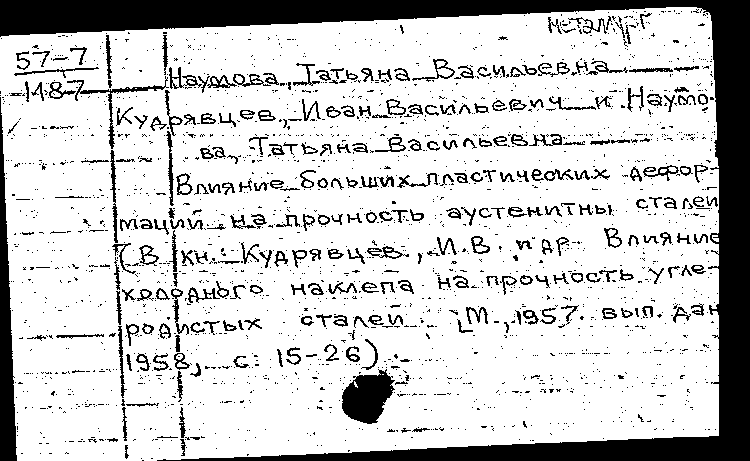 Металлург.
57-7
1187
Наумова, Татьяна Васильевна
Кудрявцев, Иван Васильевич и Наумо-
ва, Татьяна Васильевна
Влияние больших пластических дефор-
маций на прочность аустенитны сталей
(В кн.: Кудрявцев, И.В. и др. Влияние
холодного наклепа на прочность угле-
родистых сталей. [М., 1957. вып. дан
1958, с: 15-26).